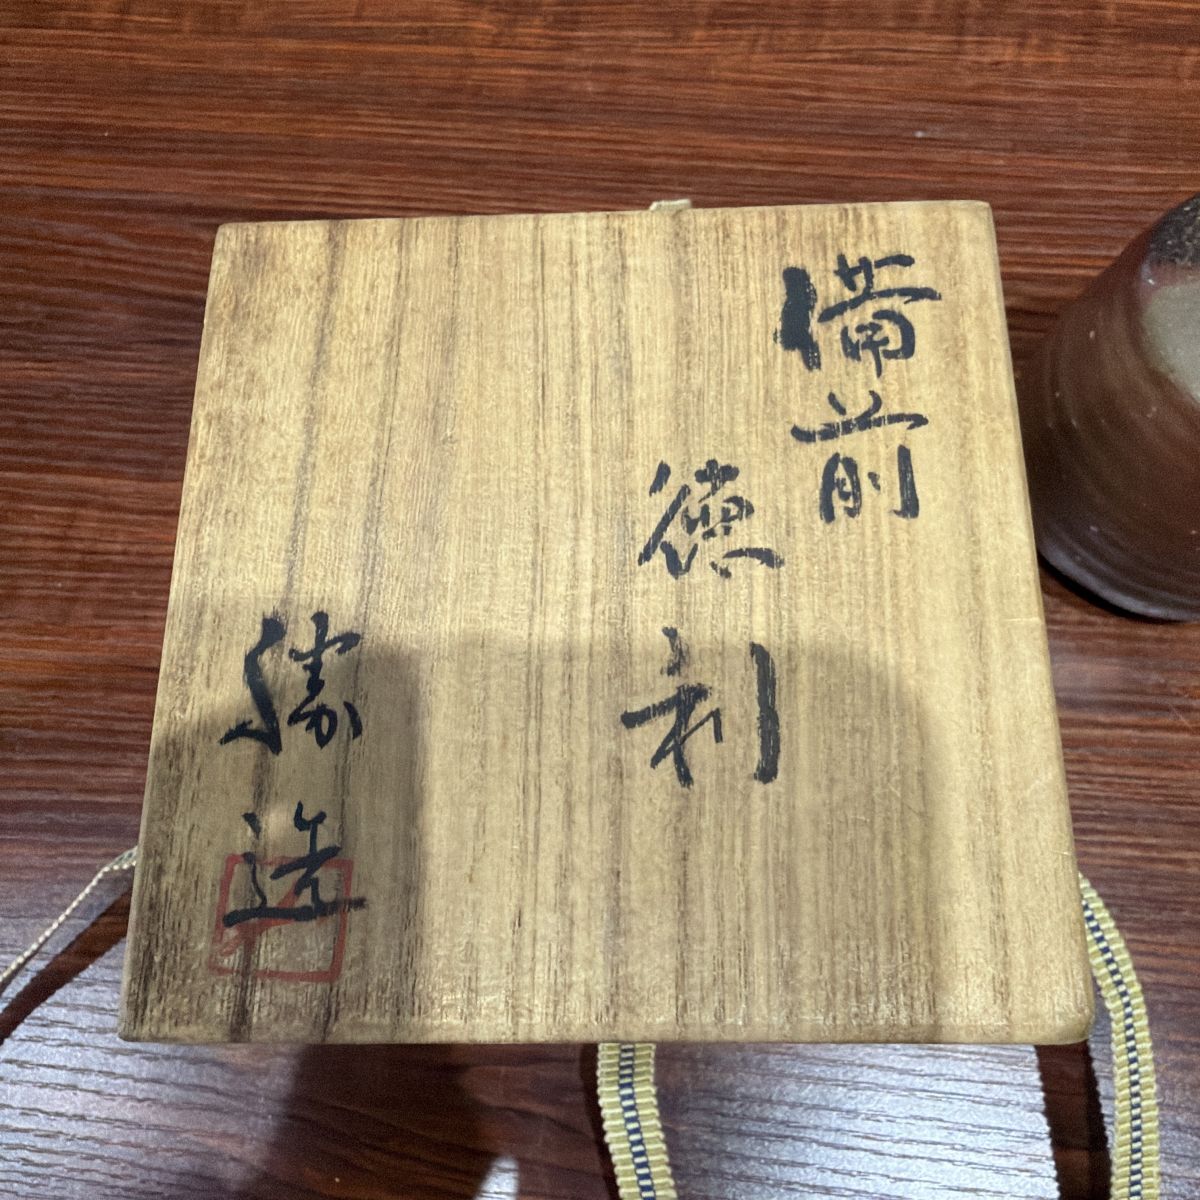 備前
徳利
勝造